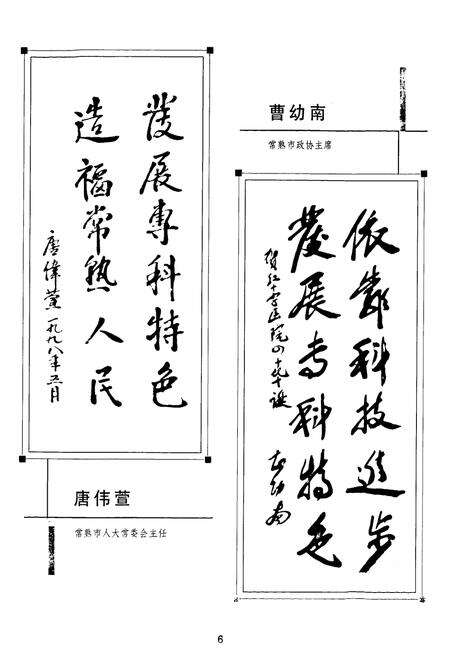 發展專科特色
造福常熟人民
唐偉萱一九九八年五月
唐伟萱
常熟市人大常委会主任
曹幼南
常熟市政协主席
依靠科技進步
發展专科特色
贺红十字医院
曹幼南
6